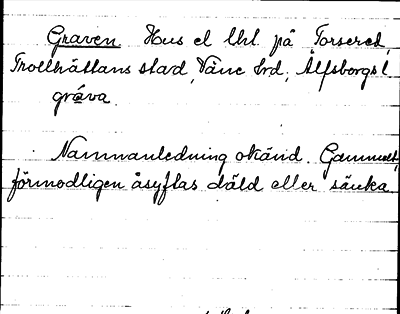 Graven Hus el lht. på Torsered,
Trollhättans stad, Väne hrd, Älfsborgs l
gráva.
Namnanledning okänd. Gammalt,
förmodligen åsyftas däld eller sänka